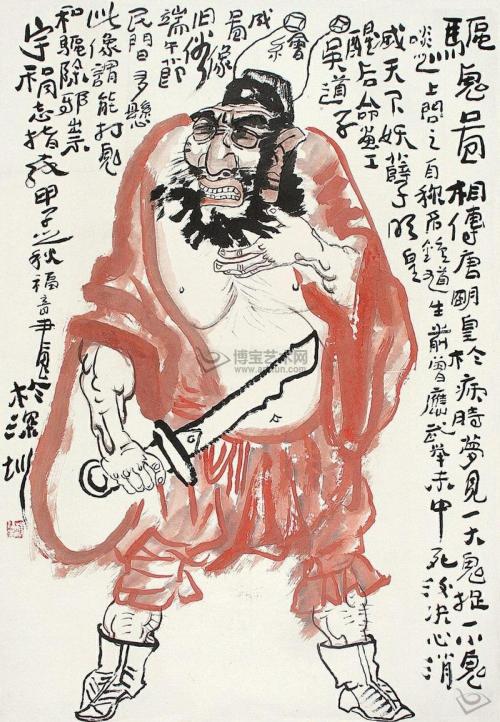 驅鬼啚 相傳唐明皇於病時夢見一大鬼捉一小鬼
啖之上問之自称名鍾馗生前曾應武举未中死後决心消
滅天下妖孽明皇
醒后命画工
吴道子
繪
成
啚像
旧俗
端午節
民間多懸
此像謂能打鬼
和驅除邪祟
甲子之秋福音
於深圳
博宝艺术网
www.artxun.com